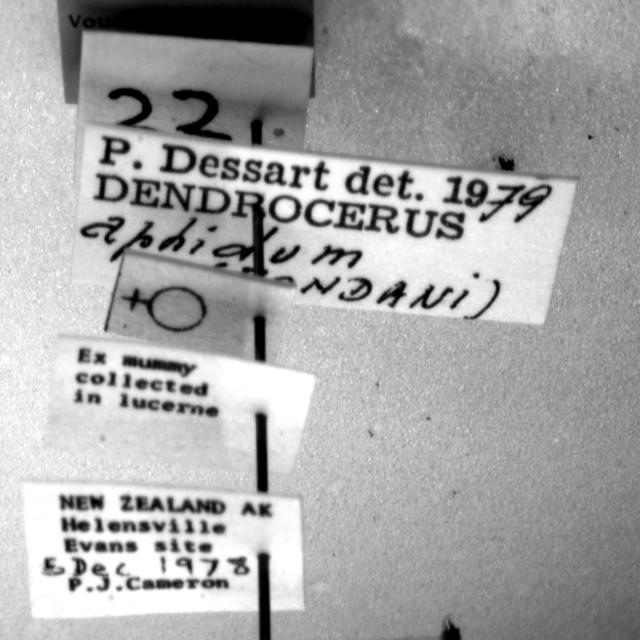 22
P. Dessart det. 1979
DENDROCERUS
aphidum
NDANi)
♀
Ex mummy
collected
in lucerne
NEW ZEALAND AK
Helensville
Evans site
5 Dec 1978
P.J.Cameron